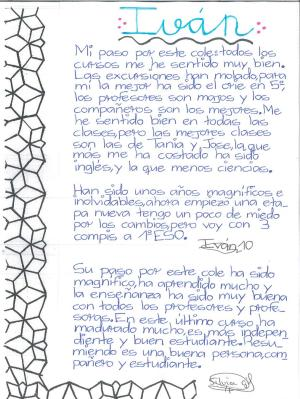 Iván
Mi paso por este cole: todos los
cursos me he sentido muy bien.
Las excursiones han molado, para
mí la mejor ha sido el crie en 5º,
los profesores son majos y los
compañeros son los mejores. Me
he sentido bien en todas las
clases, pero las mejores clases
son las de Tania y Jose, la que
más me ha costado ha sido
inglés, y la que menos ciencias.
Han sido unos años magníficos e
inolvidables, ahora empiezo una eta-
pa nueva tengo un poco de miedo
por los cambios, pero voy con 3
compis a 1º ESO.
Su paso por este cole ha sido
magnífico, ha aprendido mucho y
la enseñanza ha sido muy buena
con todos los profesores y profe-
soras. En este último curso ha
madurado mucho, es más indepen
diente y buen estudiante. Resu-
miendo es una buena persona, com
pañero y estudiante.
Silvia